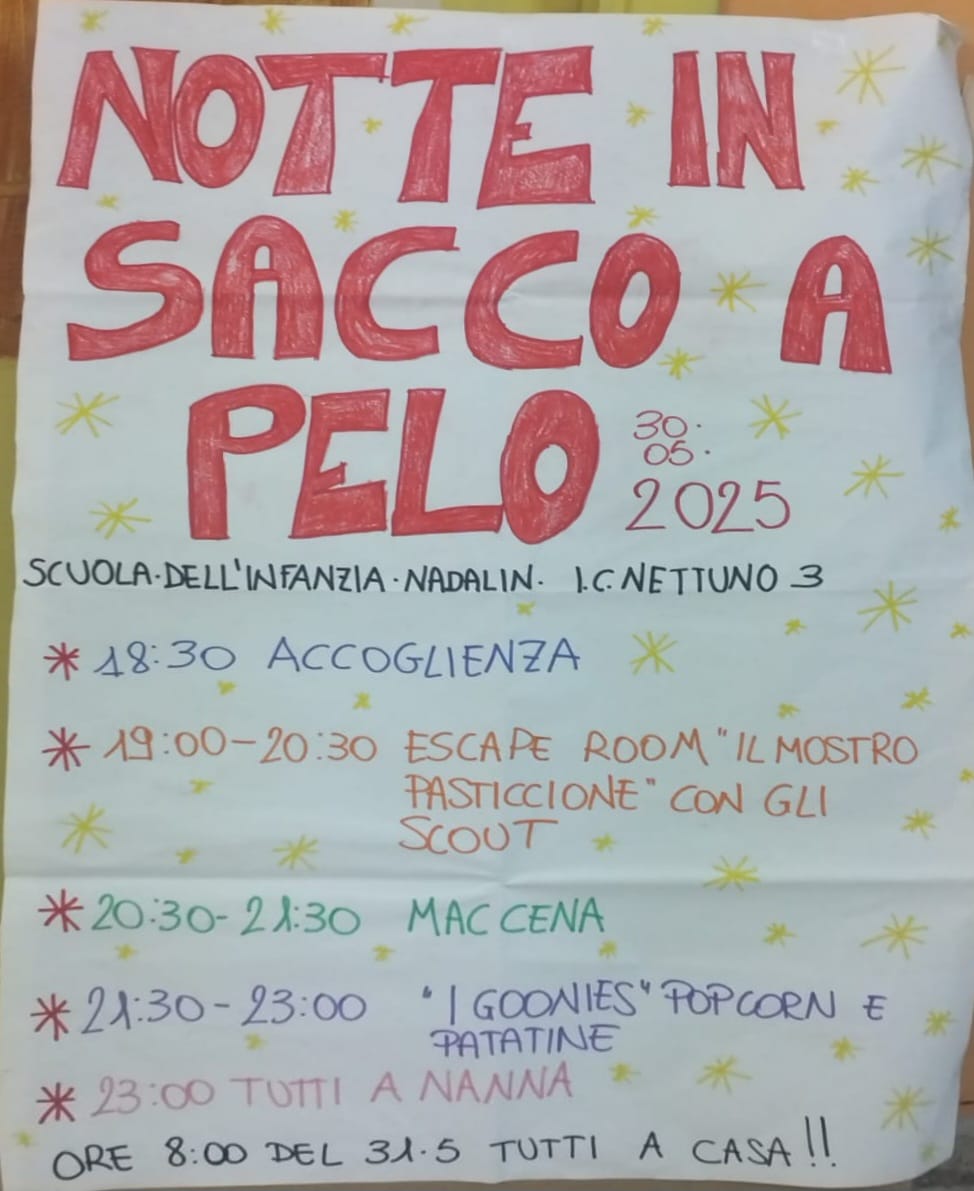 NOTTE IN
SACCO A
PELO
30.
05.
2025
SCUOLA·DELL'INFANZIA·NADALIN· I.C. NETTUNO 3
* 18:30 ACCOGLIENZA
* 19:00-20:30 ESCAPE ROOM "IL MOSTRO
PASTICCIONE" CON GLI
SCOUT
* 20:30-21:30 MAC CENA
* 21:30-23:00 "I GOONIES" POPCORN E
PATATINE
* 23:00 TUTTI A NANNA
ORE 8:00 DEL 31.5 TUTTI A CASA!!